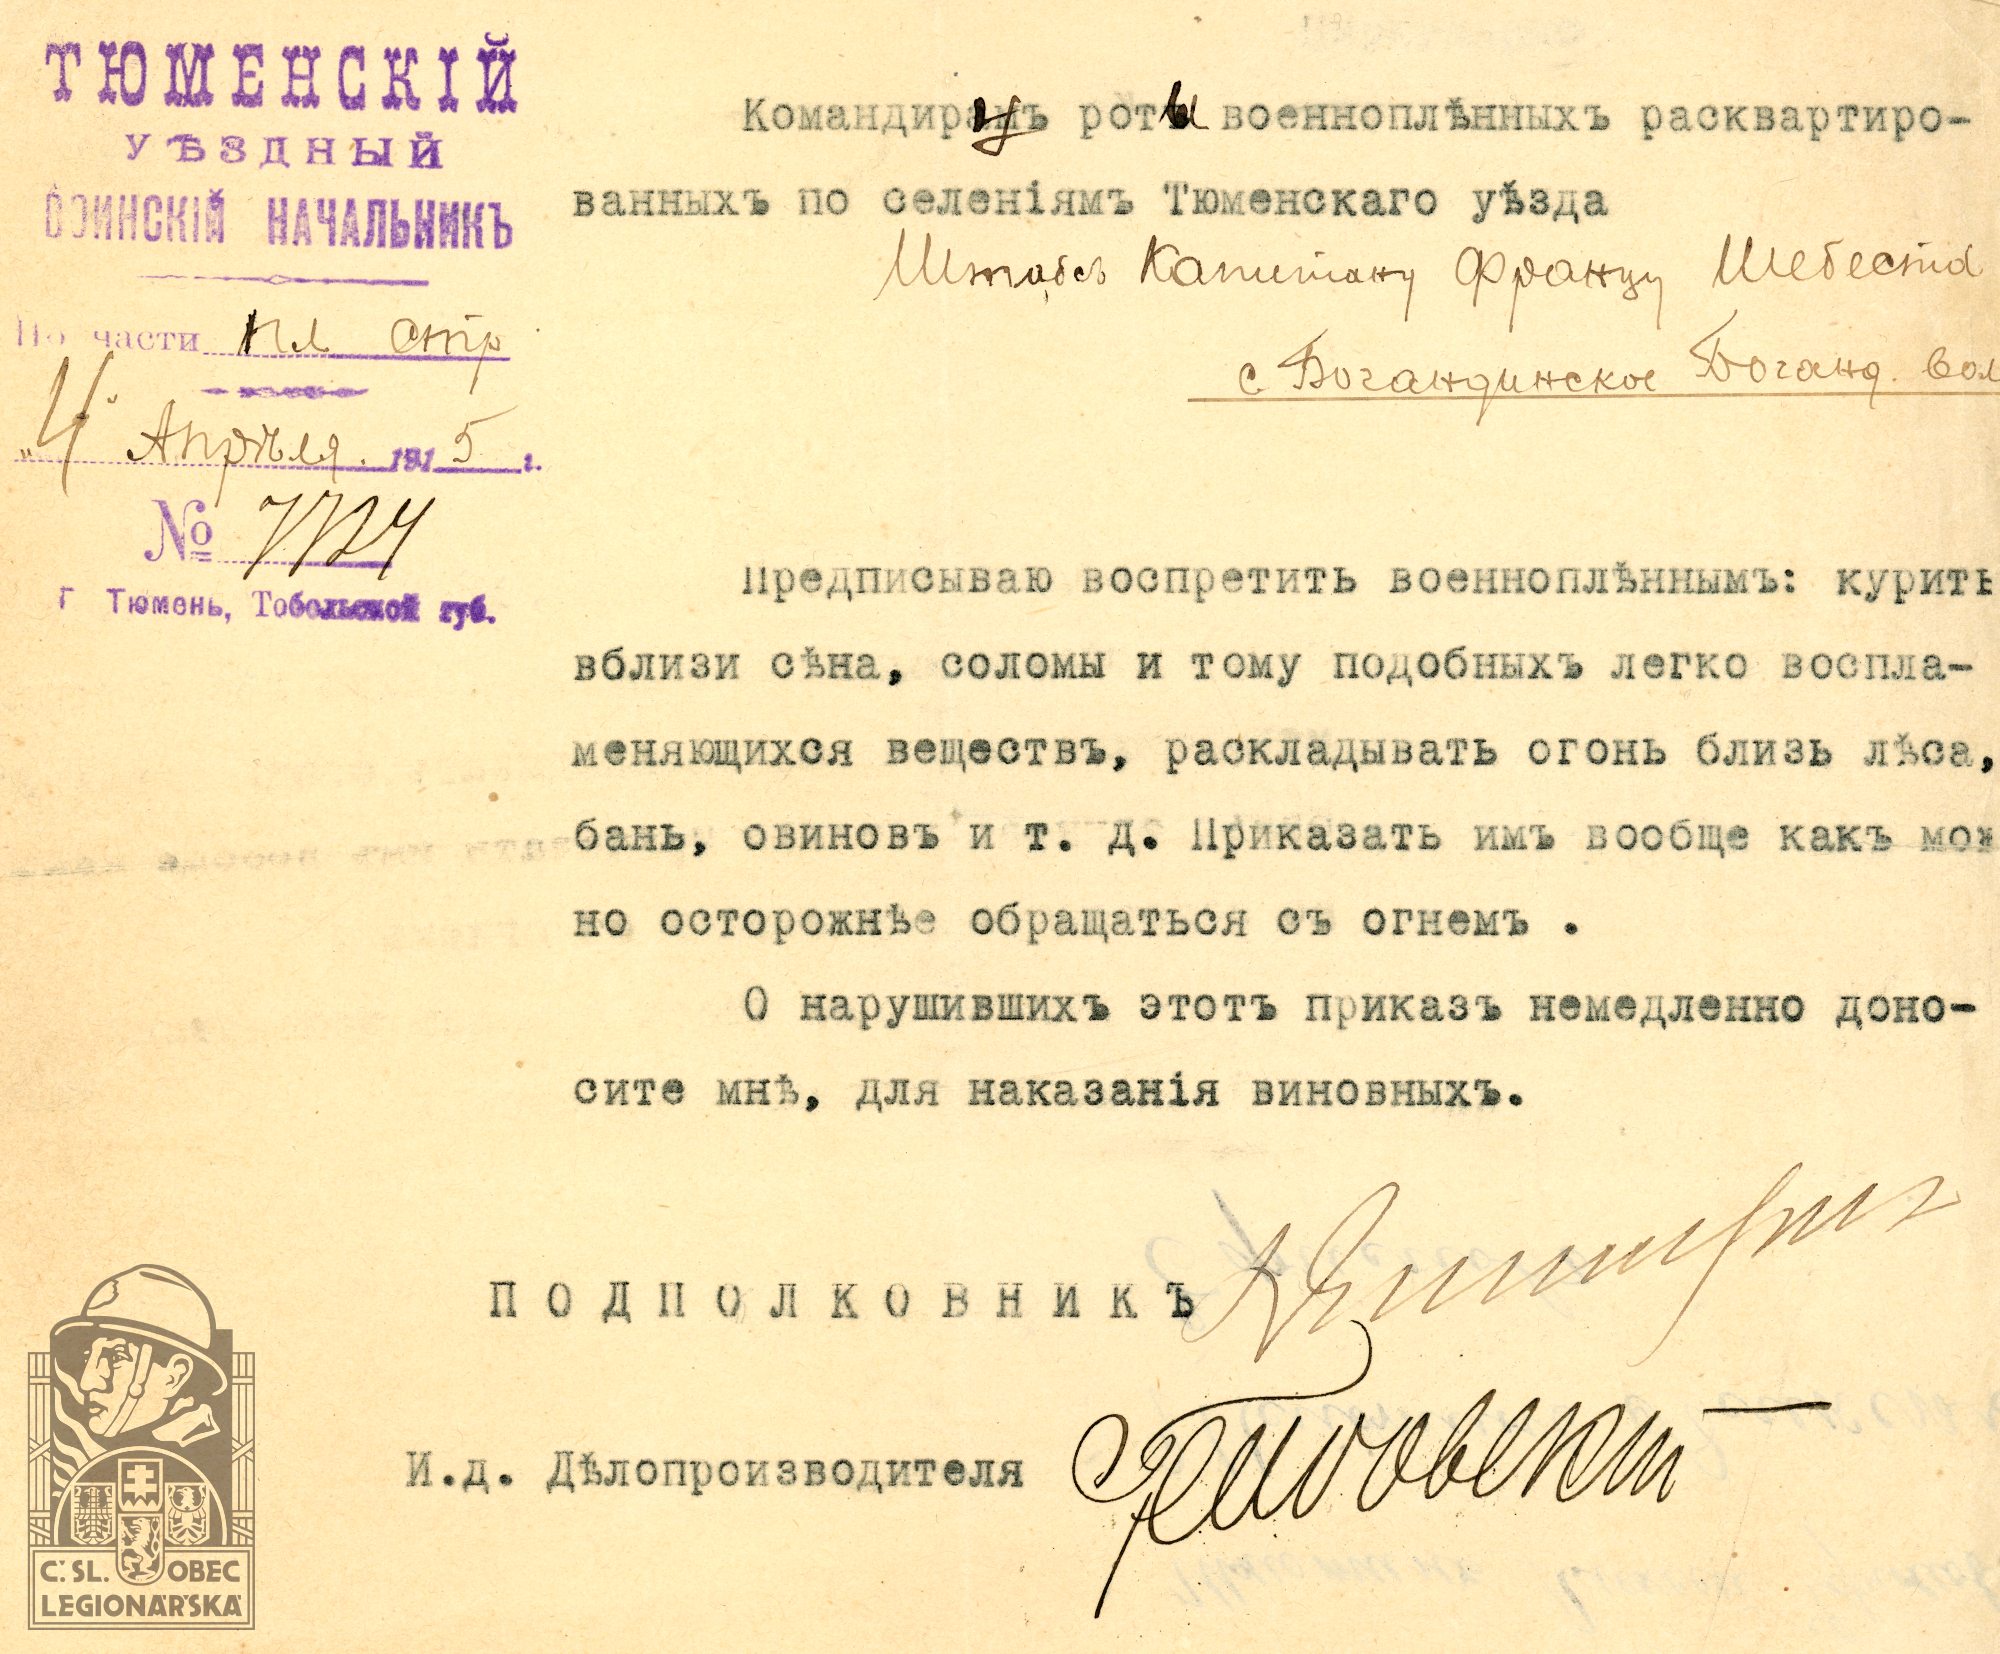 ТЮМЕНСКІЙ
УѢЗДНЫЙ
ВОИНСКІЙ НАЧАЛЬНИКЪ
По части пл стр
"4" Апрѣля 1915 г.
№ 7724
Г Тюмень, Тобольской губ.
Командиру роты военноплѣнныхъ расквартиро-
ванныхъ по селеніямъ Тюменскаго уѣзда
Штабсъ Капитану Францу Шебеста
с. Богандинское Боганд. вол
Предписываю воспретить военноплѣннымъ: курить
вблизи сѣна, соломы и тому подобныхъ легко воспла-
меняющихся веществъ, раскладывать огонь близь лѣса,
бань, овиновъ и т. д. Приказать имъ вообще какъ мож
но осторожнѣе обращаться съ огнемъ .
О нарушившихъ этотъ приказъ немедленно доно-
сите мнѣ, для наказанія виновныхъ.
ПОДПОЛКОВНИКЪ
И.д. Дѣлопроизводителя
Č. SL. OBEC
LEGIONÁŘSKÁ